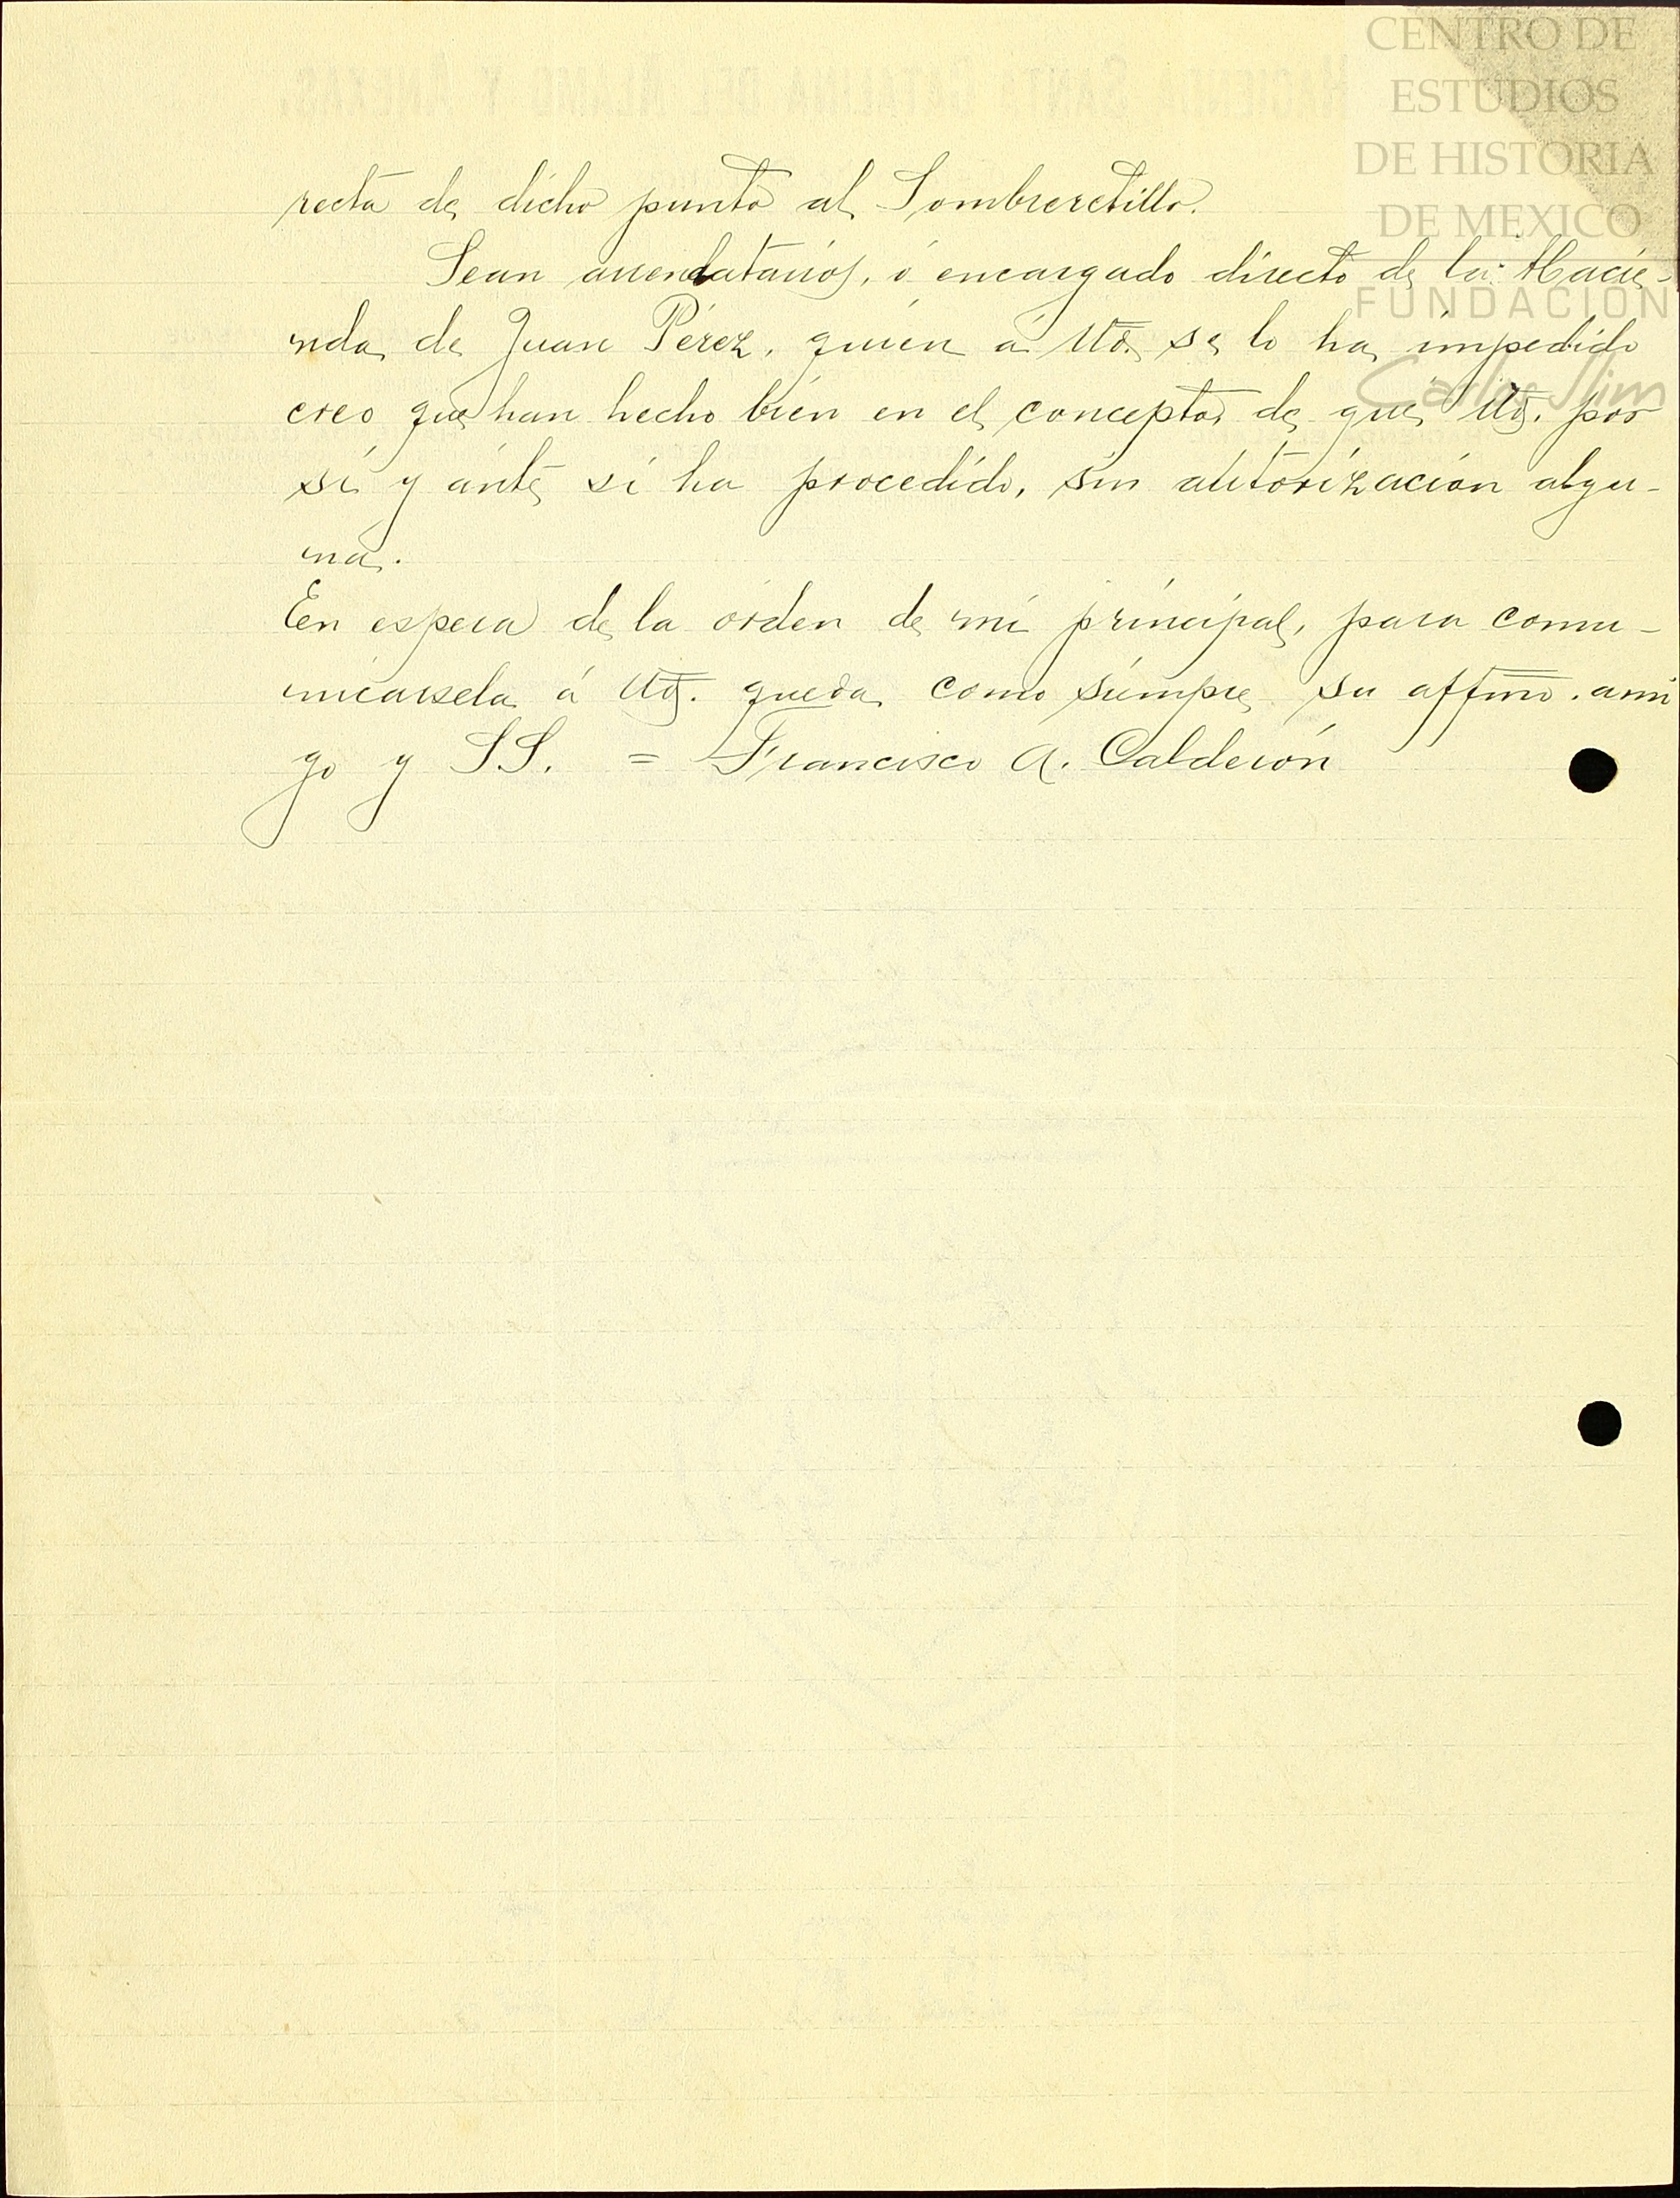 CENTRO DE
ESTUDIOS
DE HISTORIA
DE MEXICO
FUNDACIÓN
Carlos Slim
recta de dicho punto al Sombreretillo.
Sean arrendatarios, ó encargado directo de la Hacie-
nda de Juan Pérez, quien á Ud. se lo ha impedido
creo que han hecho bien en el concepto de que Ud. por
sí y ánte sí ha procedido, sin autorización algu-
na.
En espera de la orden de mi principal, para comu-
nicarsela á Ud. queda como siempre su affmo. ami
go y SS. = Francisco A. Calderón